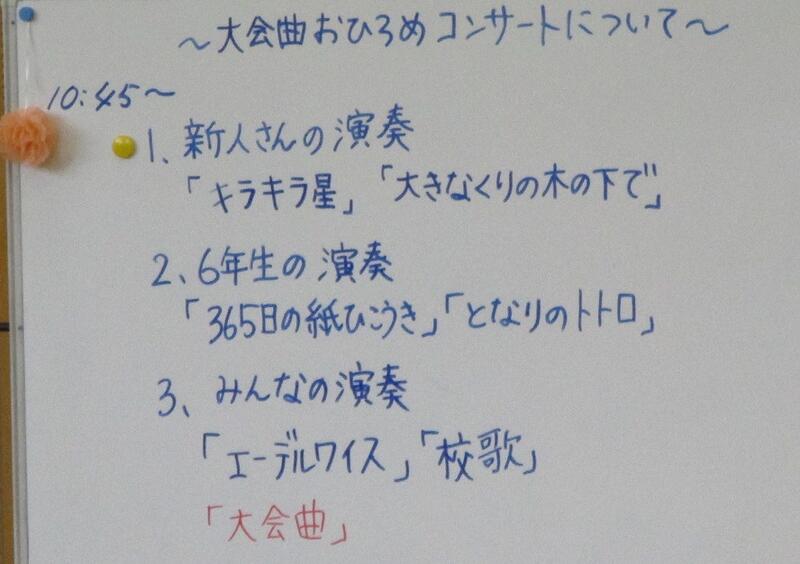 ～大会曲おひろめコンサートについて～
10:45～
1、新人さんの演奏
「キラキラ星」「大きなくりの木の下で」
2、6年生の演奏
「365日の紙ひこうき」「となりのトトロ」
3、みんなの演奏
「エーデルワイス」「校歌」
「大会曲」